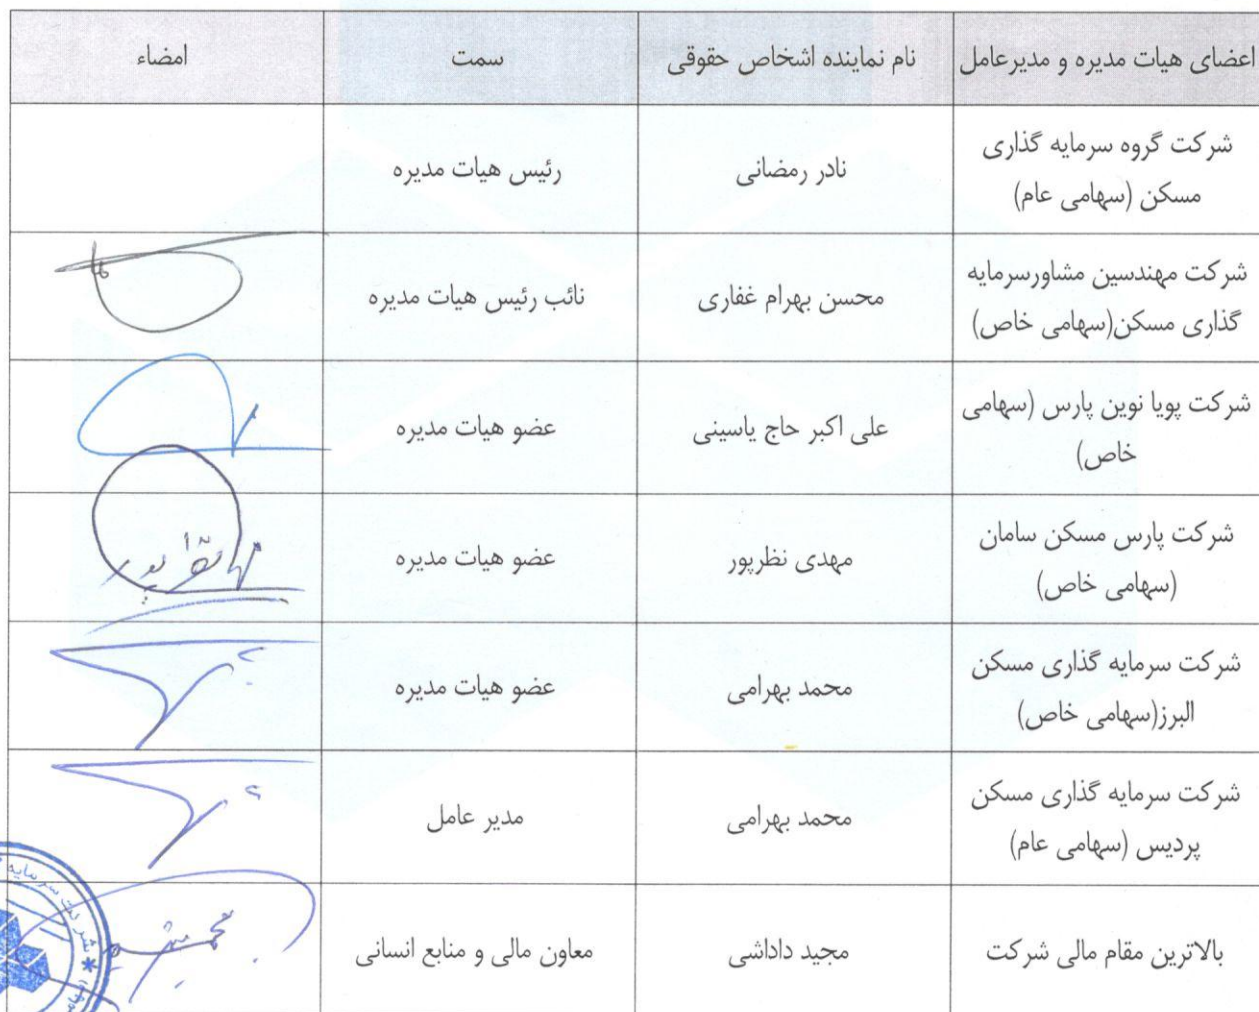 اعضای هیات مدیره و مدیرعامل	نام نماینده اشخاص حقوقی	سمت	امضاء
شرکت گروه سرمایه گذاری
مسکن (سهامی عام)	نادر رمضانی	رئیس هیات مدیره
شرکت مهندسین مشاورسرمایه
گذاری مسکن(سهامی خاص)	محسن بهرام غفاری	نائب رئیس هیات مدیره
شرکت پویا نوین پارس (سهامی
خاص)	علی اکبر حاج یاسینی	عضو هیات مدیره
شرکت پارس مسکن سامان
(سهامی خاص)	مهدی نظرپور	عضو هیات مدیره
شرکت سرمایه گذاری مسکن
البرز(سهامی خاص)	محمد بهرامی	عضو هیات مدیره
شرکت سرمایه گذاری مسکن
پردیس (سهامی عام)	محمد بهرامی	مدیر عامل
بالاترین مقام مالی شرکت	مجید داداشی	معاون مالی و منابع انسانی
شرکت سرمایه